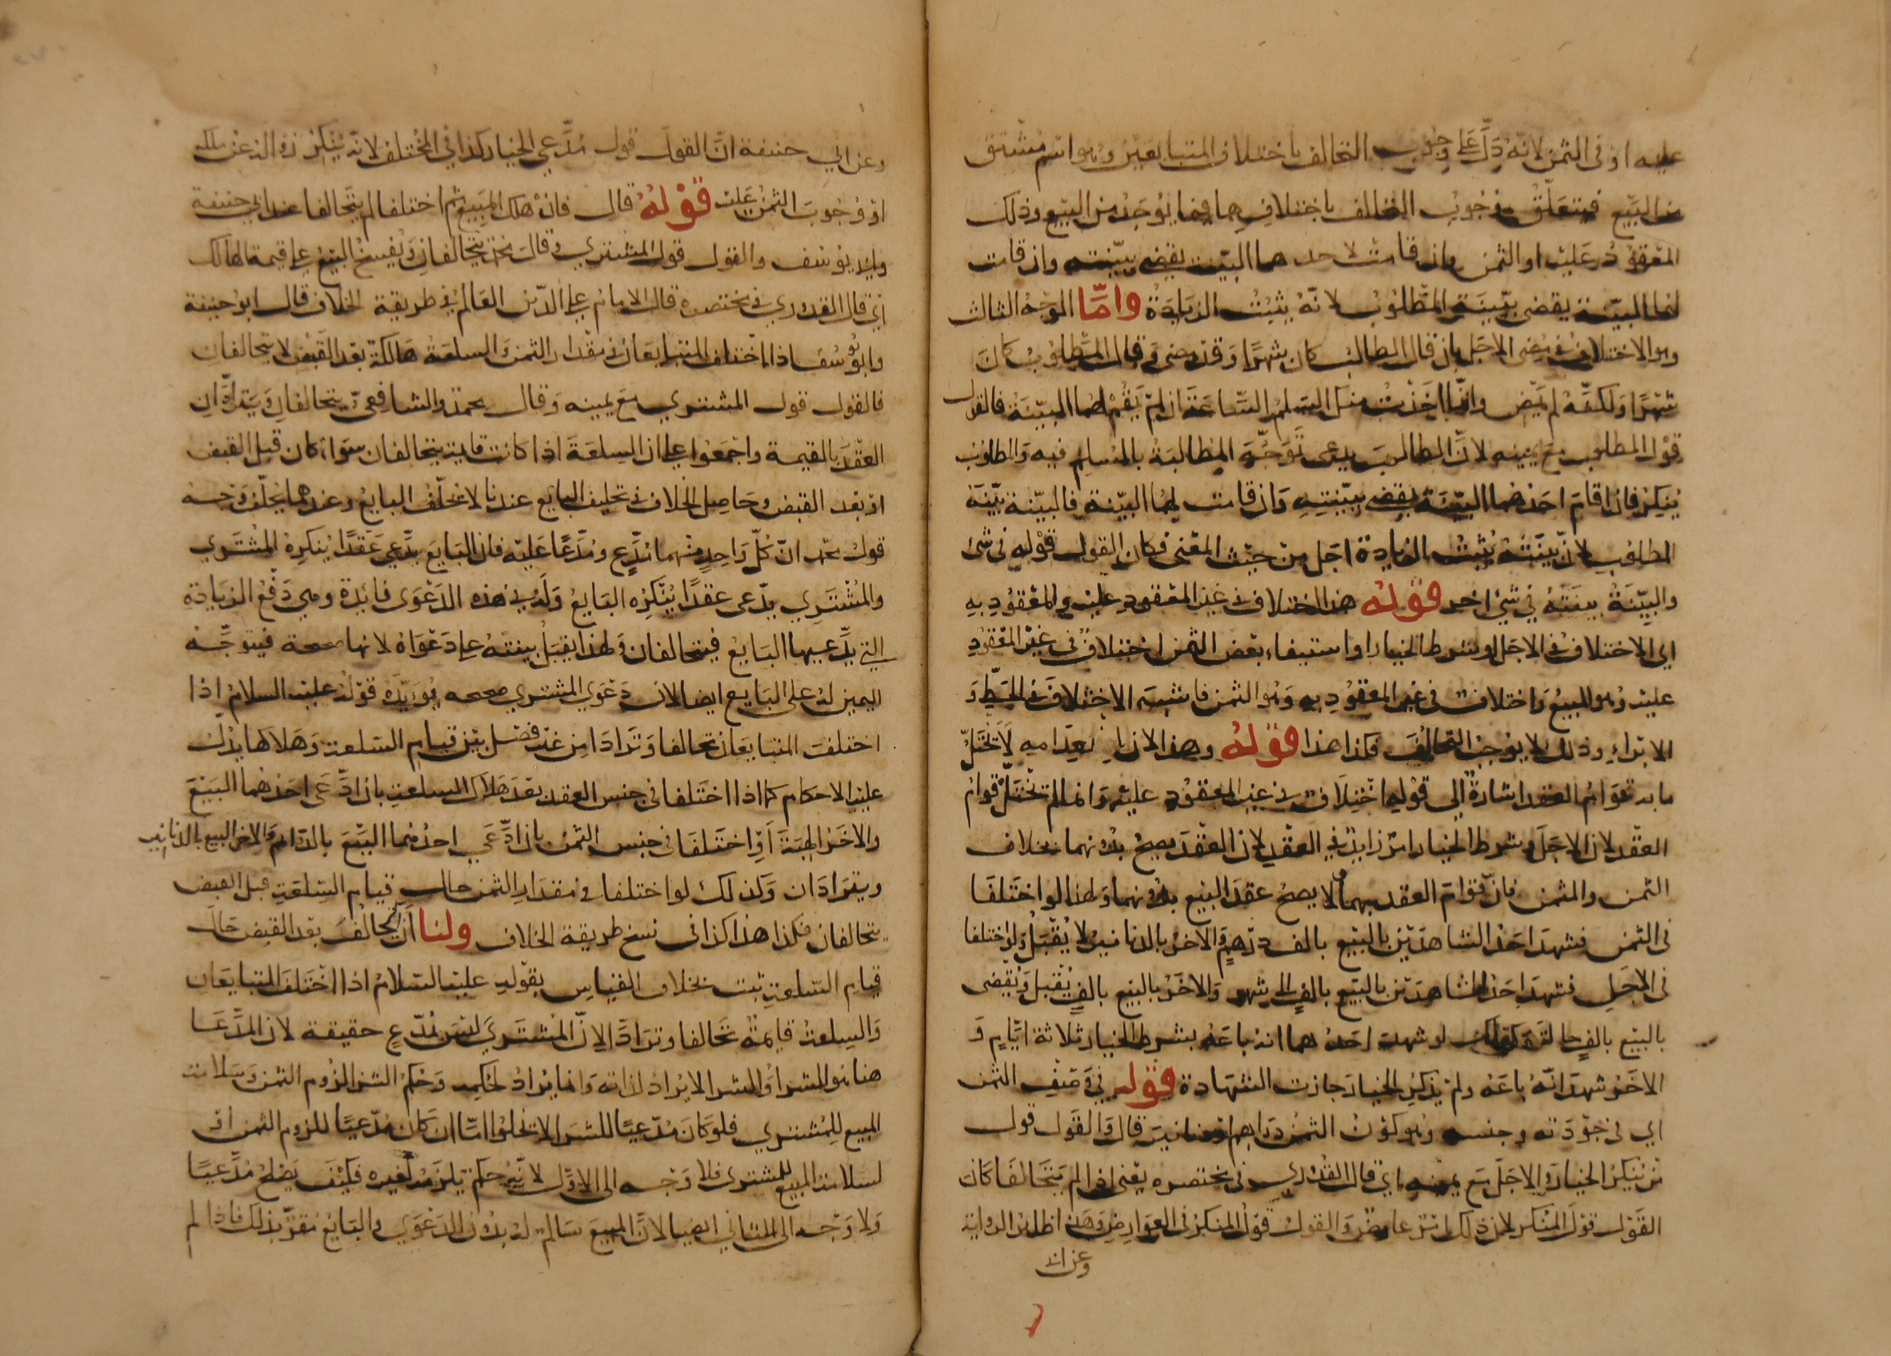 عليه او فى الثمن لانّه دَلّ على وجُوب التحالف باختلاف المتبايعين وهو اسم مشتق
من البيع فيتعلّق وجُوب التحالف باختلافهما فيما يوجد من البيع وذلك
المعقود عليه او الثمن وان قامت لاحدهما البيّنة يقضى ببيّنته وان قامت
لهما البيّنة يقضى ببيّنة المطلوب لانّه يثبت الزيادة وامّا الوجه الثالث
وهو الاختلاف فى مضى الاجل بان قال الطالب كان شهرًا وقد مضى وقال المطلوب كان
شهرًا ولكنّه لم يمض وانّما اخذت منك السلم السّاعة فان لم يقم لهما البيّنة فالقول
قول المطلوب مع يمينه لانّ الطالب يدعى توجّه المطالبة بالمسلم فيه والمطلوب
ينكر فان اقام احدهما البيّنة يقضى ببيّنته وان قامت لهما البيّنة فالبيّنة بيّنة
المطلوب لانّ بيّنته يُثبت الزيادة اجل من حيث المعنى فكان القول قوله فى شئ
والبيّنة بينته فى شئ اخر قوله هذا اختلاف فى غير المعقود عليه والمعقود به
اى الاختلاف فى الاجل او شرط الخيار او استيفاء بعض الثمن اختلاف فى غير المعقود
عليه وهو المبيع واختلاف فى غير المعقود به وهو الثمن فاشبه الاختلاف فى الحطّ و
الابراء وذلك لا يوجب التحالف فكذا هذا قوله وهذا لان بانعدامه لا يختلّ
ما به قوام العقد اشارة الى قوله اختلاف فى غير المعقود عليه وانما لم تختل قوام
العقد لان الاجل وشرط الخيار امر زايد فى العقد لان العقد يصح بدونهما بخلاف
الثمن والمثمن فانّ قوام العقد بهما لا يصح عقد البيع بدونهما ولهذا لو اختلفا
فى الثمن فشهد احد الشاهدين بالبيع بالف درهم والاخر بالدنانير لا يقبل ولو اختلفا
فى الاجل فشهد احد الشاهدين بالبيع بالف الى شهر والاخر بالبيع بالف يقبل ويقضى
بالبيع بالف حالة وكذلك لو شهد احدهما انه باعه بشرط الخيار ثلاثة ايّام و
الاخر شهد انّه باعه ولم يذكر الخيار جازت الشهادة قوله فى وصف الثمن
اى فى جودته وجنسه وهو كون الثمن دراهم او دنانير قال والقول قول
من ينكر الخيار والاجل مع يمينه اى قال القدورى فى مختصره يعنى اذا لم يتحالفا كان
القول قول المنكر لان ذلك امر عارض والقول قول المنكر فى العوارض وهذا ظاهر الرواية
وعن ابى
وعن ابى حنيفة انّ القول قول مدّعى الخيار كذا فى المختلف لانّه ينكر زوال العين عن ملكه
او وجوب الثمن عليه قوله قال فان هلك المبيع ثم اختلفا لم يتحالفا عند ابى حنيفة
وابى يوسف والقول قول المشترى وقال محمد يتحالفان ويفسخ البيع على قيمة الهالك
اى قال القدورى فى مختصره قال الامام علاء الدّين العالم فى طريقة الخلاف قال ابو حنيفة
وابو يوسف اذا اختلف المتبايعان فى مقدار الثمن والسلعة هالكة بعد القبض لا يتحالفان
فالقول قول المشترى مع يمينه وقال محمد والشافعى يتحالفان ويترادّان
العقد بالقيمة واجمعوا على ان السلعة اذا كانت قايمة يتحالفان سواء كان قبل القبض
او بعد القبض وحاصل الخلاف فى تحليف البايع عندنا لا يحلّف البايع وعندهما يحلّف وجه
قول محمد انّ كلّ واحد منهما مدّع ومدّعًا عليه فان البايع يدّعى عقدًا ينكره المشترى
والمشترى يدّعى عقدًا ينكره البايع وله فى هذه الدعوى فائدة وهى دفع الزيادة
التى يدّعيها البايع فيتحالفان ولهذا يقبل بينته على دعواه لانها صحيحة فيتوجّه
اليمين له على البايع ايضا لان دعوى المشترى صحيحة يؤيّده قوله عليه السلام اذا
اختلف المتبايعان تحالفا وترادّا من غير فصل بين قيام السّلعة وهلاكها يدلّ
عليه الاحكام كما اذا اختلفا فى جنس العقد بعد هلاك السلعة بان ادّعى احدهما البيع
والاخر الهبة او اختلفا فى جنس الثمن بان ادّعى احدهما البيع بالدراهم والاخر البيع بالدنانير
ويترادّان وكذلك لو اختلفا فى مقدار الثمن حال قيام السّلعة قبل القبض
يتحالفان فكذا هذا كذا فى نسخ طريقة الخلاف ولنا انّ التحالف بعد القبض حال
قيام السّلعة ثبت بخلاف القياس بقوله عليه السّلام اذا اختلف المتبايعان
والسلعة قايمة تحالفا وترادّا لانّ المشترى ليس بمدّع حقيقة لان المدّعا
هنا هو الشرا والشرا لا يراد لذاته وانما يراد لحكمه وحكم الشرا لزوم الثمن وسلامة
المبيع للمشترى فلو كان مدّعيًا للشرا لا يخلو امّا ان كان مدّعيًا للزوم الثمن او
لسلامة المبيع للمشترى فلا وجه الى الاوّل لانّه حكم يلزمه لغيره فكيف يصلح مدّعيًا
ولا وجه الى الثانى ايضا لانّ المبيع سالم له بدون الدعوى والبايع مقرّ بذلك فاذا لم